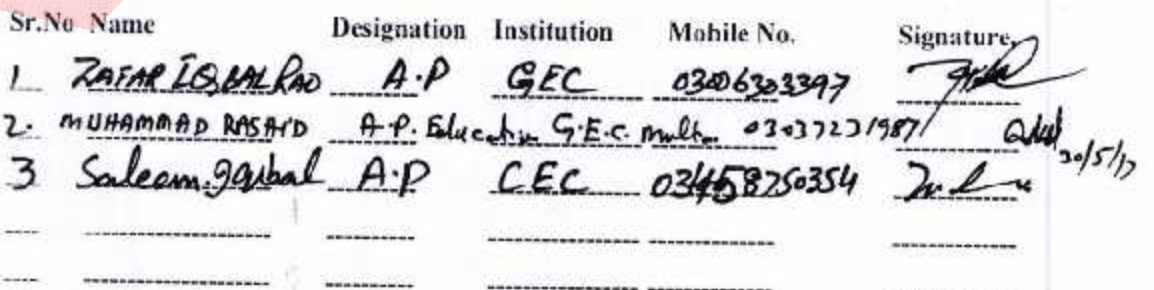 Sr.No Name Designation Institution Mobile No. Signature
1 ZAFAR IQBAL RAO A.P GEC 03006303397
2. MUHAMMAD RASAID A.P. Education G.E.C. Multan 03037231987 20/5/17
3 Saleem Iqbal A.P CEC 03458750354